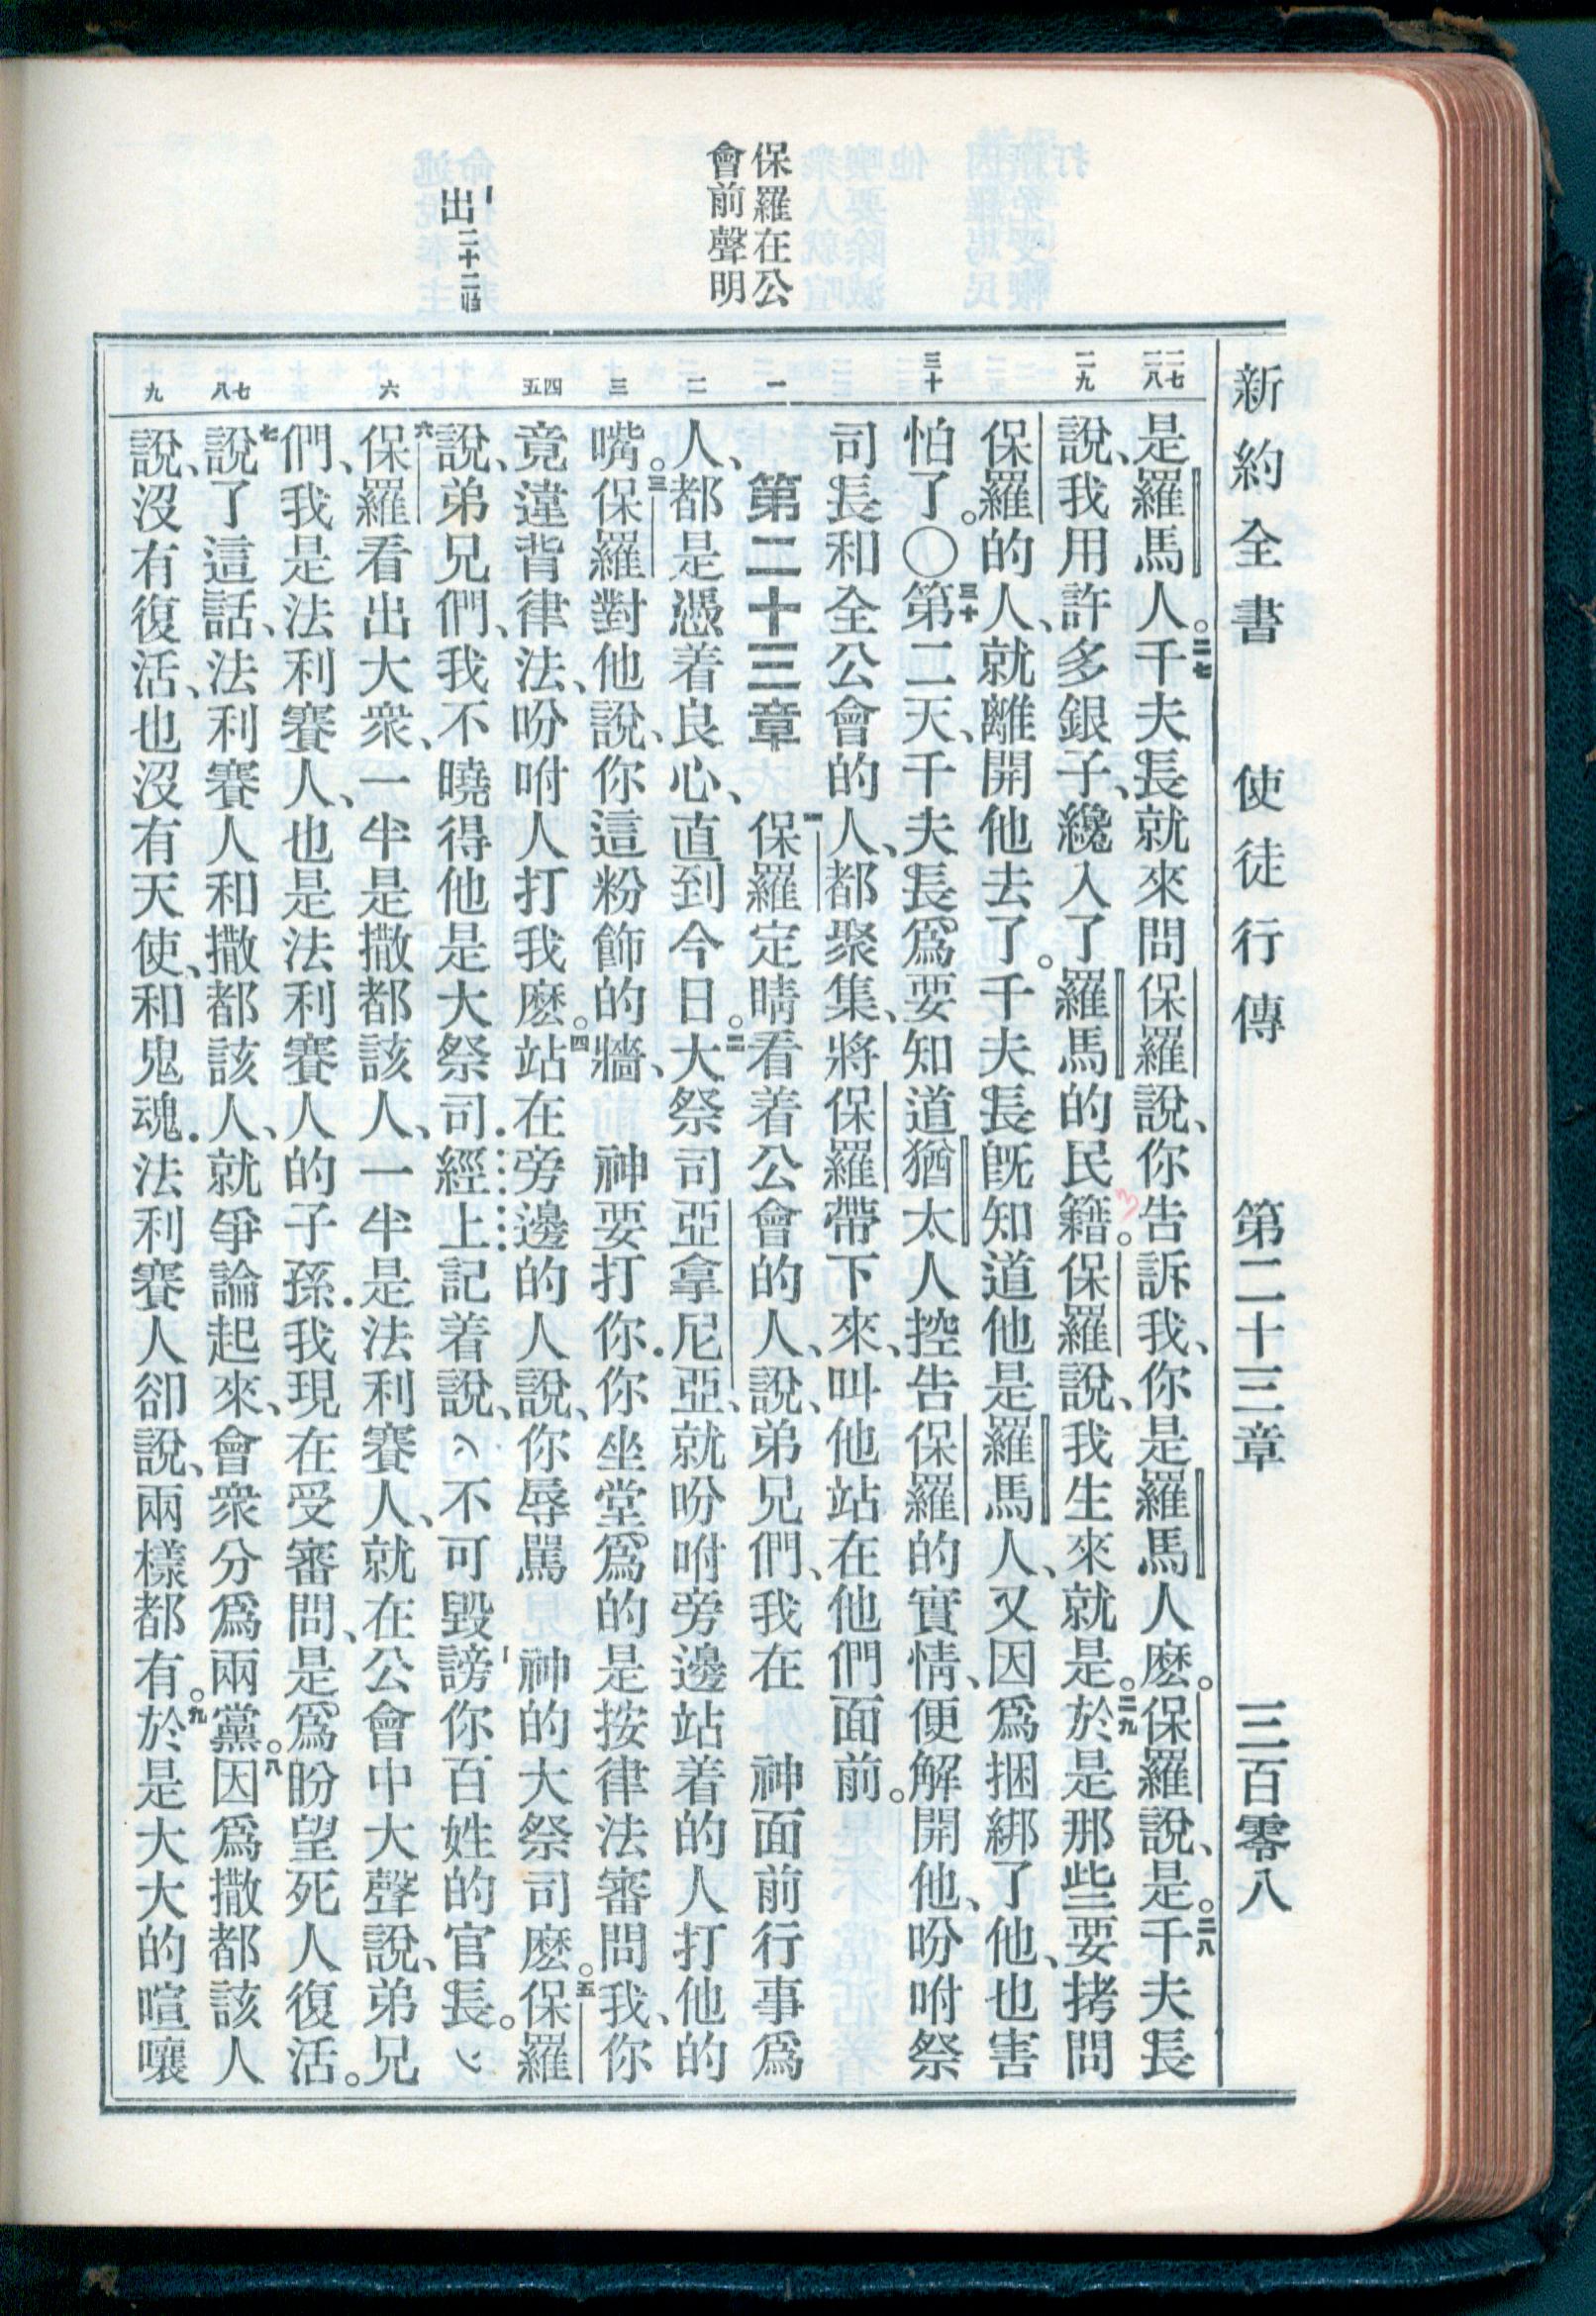 新約全書　使徒行傳　第二十三章　三百零八
保羅在公
會前聲明
出二十二
二七
二八
二九
三十
一
二
三
四
五
六
七
八
九
是羅馬人。二七千夫長就來問保羅說、你告訴我、你是羅馬人麽。保羅說、是。二八千夫長
說、我用許多銀子、纔入了羅馬的民籍。保羅說、我生來就是。二九於是那些要拷問
保羅的人、就離開他去了。千夫長旣知道他是羅馬人、又因爲捆綁了他、也害
怕了。〇三十第二天、千夫長爲要知道猶太人控告保羅的實情、便解開他、吩咐祭
司長和全公會的人、都聚集、將保羅帶下來、叫他站在他們面前。
第二十三章　一保羅定睛看着公會的人、說、弟兄們、我在　神面前行事爲
人、都是憑着良心、直到今日。二大祭司亞拿尼亞、就吩咐旁邊站着的人打他的
嘴。三保羅對他說、你這粉飾的牆、　神要打你．你坐堂爲的是按律法審問我、你
竟違背律法、吩咐人打我麽。四站在旁邊的人說、你辱駡　神的大祭司麽。五保羅
說、弟兄們、我不曉得他是大祭司．經上記着說、（不可毀謗你百姓的官長。）
六保羅看出大衆、一半是撒都該人、一半是法利賽人、就在公會中大聲說、弟兄
們、我是法利賽人、也是法利賽人的子孫．我現在受審問、是爲盼望死人復活。
七說了這話、法利賽人和撒都該人、就爭論起來、會衆分爲兩黨。八因爲撒都該人
說、沒有復活、也沒有天使、和鬼魂．法利賽人卻說、兩樣都有。九於是大大的喧嚷